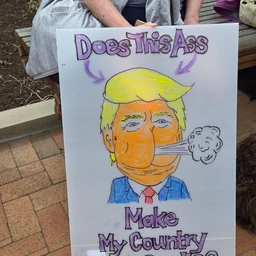 Does This Ass
Make
My Country